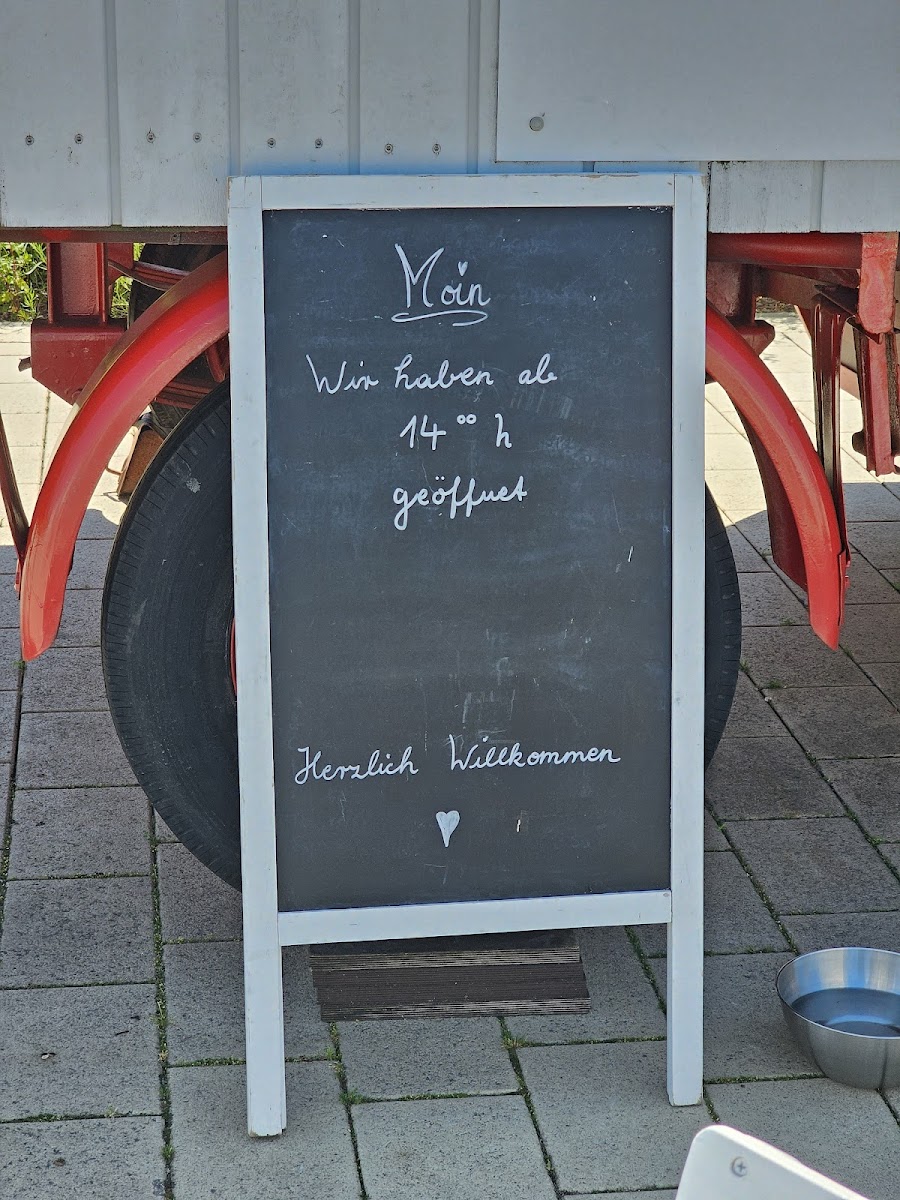 Moin
Wir haben ab
14⁰⁰ h
geöffnet
Herzlich Willkommen